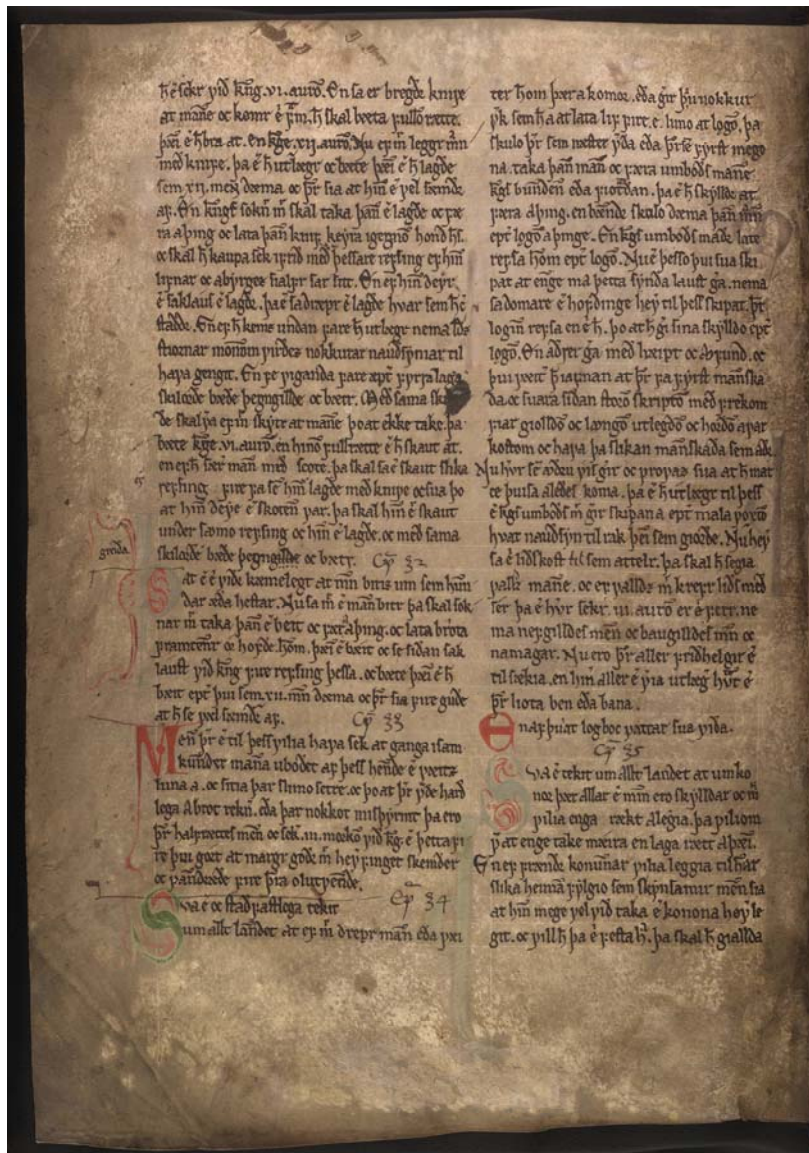 h̄ é sekr við kńg. vi. aurō. En sa er bregdr knive
at māne oc komr é f̄m. h̄ skal bœta fullō rette.
þei é h̄ bra at. en kḡe. xii. aurō. Nu ef m̄ leggr m̄n
med knive. þa é h̄ utlægr oc bœte þei é h̄ lagde
sem xii. men dœma oc þr̄ sia at hin é vel sœmdr
af. En kńgs sokn m̄ skal taka þān é lagde oc fœ
ra a þing. oc lata þān knif keyra igegnō hond h̄s.
oc skal h̄ kaupa sek i frid med þessare refsing ef hin
lifnar oc abyrgez sialfr sar sitt. En ef hin deyr
é saklaus é lagde. þa é sa dræpr é lagde hvar sem h̄ é
staddr. En ef h̄ kems undan fare h̄ utlægr nema
stiornar monom virdez nokkurar naudsyniar til
hava gengit. En fe viganda fare æpt fyrra laga
skilorde bœde þegngillde oc bœtr. Med sama
de skal ef m̄ skytr at māne þo at ekke take. þa
bœte kḡe. vi. aurō. en hinō fullrette é h̄ skaut at.
en ef h̄ sær mān med scote. þa skal sa é skaut slika
refsing fire fa sē hin lagde med knive oc sua þo
at hin deye é skoten var. þa skal hin é skaut
under sōmo refsing oc hin é lagde. oc med sama
skilorde bœde þegngillde oc bœtr. Cap̄ 32
grida
at é é vida kœmelegt at m̄n bitas um sem hun
dar æda hestar. Nu sa m̄ é mān bitr þa skal sok
nar m̄ taka þān é beit oc fœra a þing. oc lata brota
framtenr or hofde hōm. þei é bœit oc se sidan sak
laust vid kńg fire refsing þessa. oc bœte þei é h̄
bœit ept þui sem. xii. m̄n dœma oc þr̄ sia fire gude
at h̄ se vœl sœmdr af. Cap̄ 33
Men þr̄ é til þess vilia hava sek at ganga i sam
kunder māna ubodet af þess hende é vœitz
luna a. oc sitia þar sinno setre. oc þo at þr̄ v̄de hard
lega a brot rekn̄. eda þar nokkot misþyrmt þa ero
þr̄ halfrettes men oc sek̄. iii. mœrkō vid kḡ. é þetta fi
re þui gort at margr gode m̄ hev̄ finget skemder
oc vandrœde firir þ̄ra olutvende.
Cap̄ 34
Sva é oc stadfastlega tekit
um allt landet at ef m̄ drepr mān eda væi
ter hom þœra komor. eda gir h̄m nokkut
v̄k sem h̄ a at lata lif fire. e. limo at logō. þa
skulo þr̄ sem mæster v̄da eda þr̄ sē fyrst mego
na. taka þān mān oc fœra umbods māne
kḡs bunden eda fiotradan. þa é h̄ skylldr at
fœra a þing. en bœndr skulo dœma þān m̄n
ept logō a þinge. En kḡs umbods madr late
refsa hōm ept logō. Nu é þesso þui sua ski
pat at enge ma þetta synda laust gā. nema
sa domare é hofdinge hev̄ til þess skipat. þt
login refsa en é h̄. þo at h̄ gi sina skylldo ept
logō. En adrer gā med hæift oc ofund. oc
þui vœit þiarnan at þr̄ fa fyrst manska
da. oc suara sidan storō skriptō med frekom
fiar gioldō oc lœngō utlegdō oc hordō afar
kostom oc hava þa slikan mānskada sem adr.
Nu hv̄r sē andru vis gir oc profaz sua at h̄ mat
te þui sa a ledes koma. þa é h̄ utlægr til þess
é kḡs umbods m̄ gir skipana ept mala vœxtō
hvar naudsyn til rak þei sem giorde. Nu hev̄
sa é lidskost til sem attelr. þa skal h̄ segia
valld māne. oc ef valldz m̄ krefr lids med
ser þa é hv̄r sekr. iii. aurō er é fetr. ne
ma nefgilldes men oc baugilldes m̄n oc
namagar. Nu ero þr̄ aller fridhelgir é
til sœkia. en hin̄ aller é v̄ia utlæḡ hv̄t é
þr̄ liota ben eda bana.
En af þui at logboc vattar sua vida.
Cap̄ 35
Sva é tekit um allt landet at um ko
nor þœr allar é m̄n ero skylldar oc m̄
vilia enga rækt a legia. þa viliom
v̄ at enge take mœira en laga rœtt a þei.
En ef frændr konunar vilia leggia til h̄ar
slika heiman fylgio sem skynsamir men sia
at hin mege vel vid taka é konona hev̄ le
git. oc vill h̄ þa é festa h̄. þa skal h̄ giallda